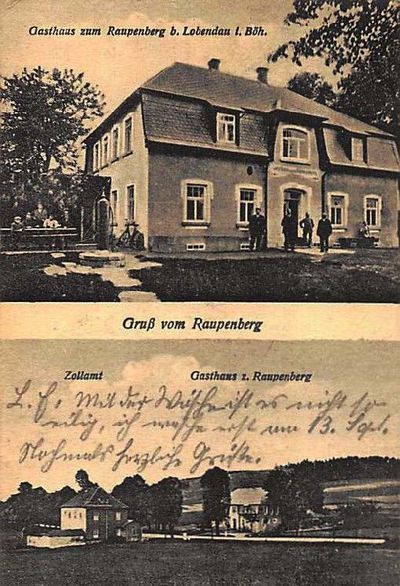 Gasthaus zum Raupenberg b. Lobendau i. Böh.
Gruß vom Raupenberg
Zollamt Gasthaus z. Raupenberg
L. E. Mit der Wäsche ist es nicht so
eilig, ich wasche erst am 13. Sept.
Nochmals herzliche Grüße.